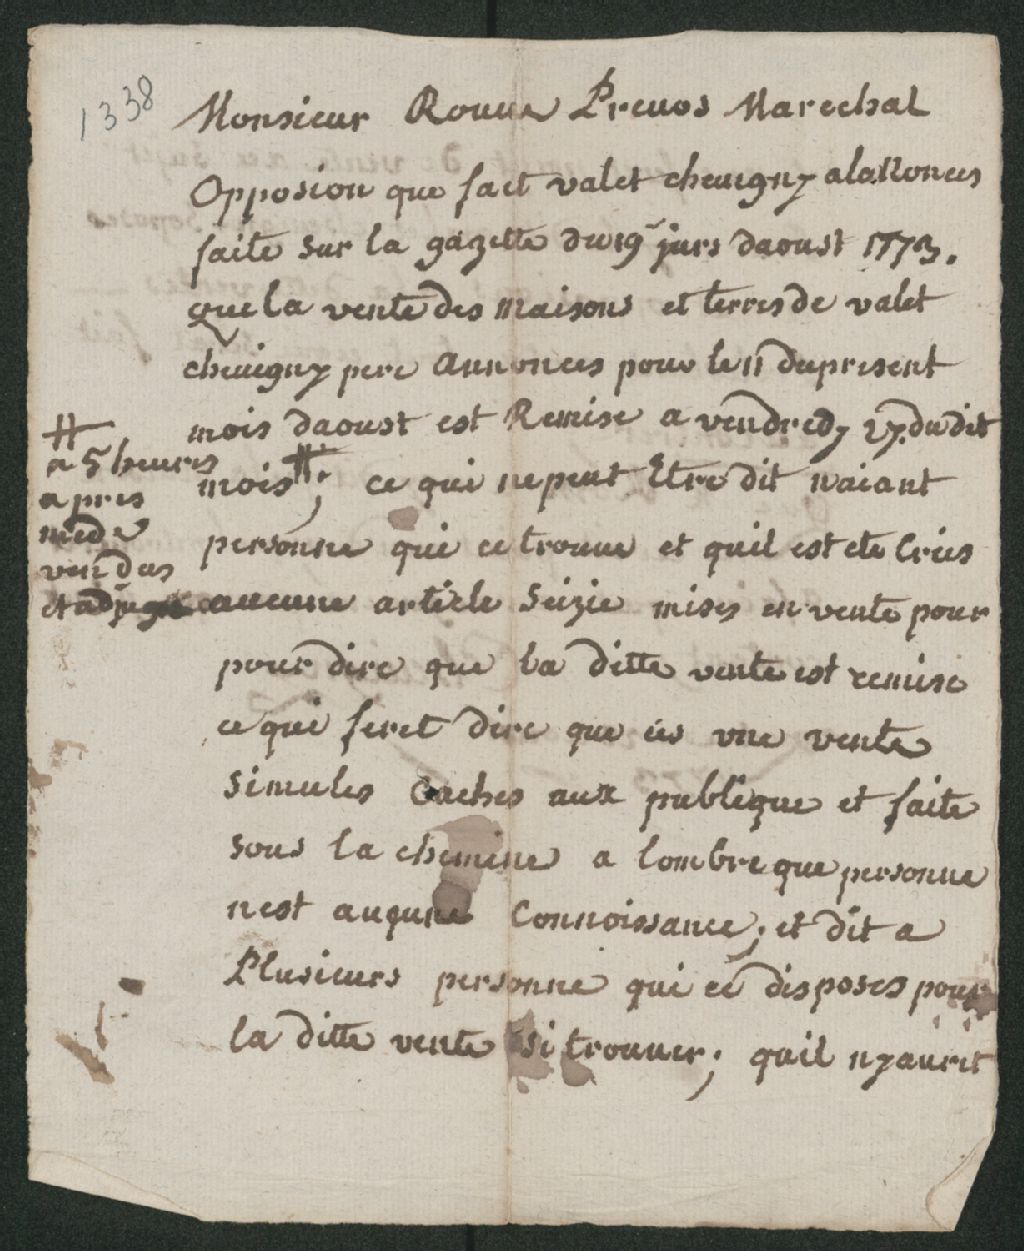 1338
Monsieur Rouue Preuos Marechal
Opposion que fait valet cheuigny a la Nonces
faite sur la gazette du 19e jurs daoust 1773.
que la vente des maisons et terres de valet
cheuigny pere Annonces pour le 11 du present
mois daoust est Remise a vendredy 27. du dit
mois #; ce qui ne peut Etre dit naiant
personne qui ce trouue et quil est ete Cries
aucune article Seizie mises en vente pour
pour dire que la ditte vente est remise
ce qui feret dire que ces vne vente
simules Caches aux publique et faite
sous la chemine a lombre que personne
nest auqune Connoissance; et dit a
Plusieurs personne qui ce disposes pour
la ditte vente si trouuer; quil ny auret
#
a 5 heures
apres
mede
vendus
et adjuge